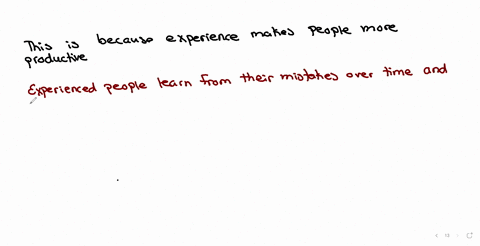 This is because experience makes people more
productive
Experienced people learn from their mistakes over time and